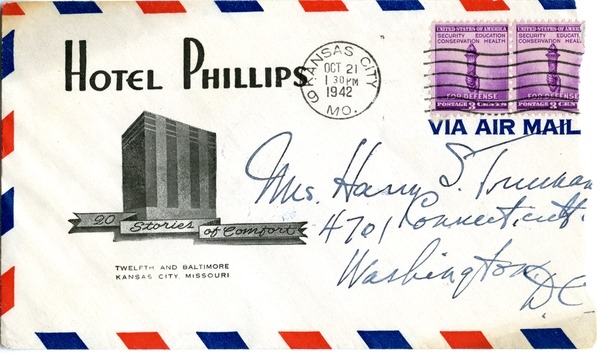 HOTEL PHILLIPS
KANSAS CITY
OCT 21
1 30 PM
1942
MO.
UNITED STATES OF AMERICA
SECURITY EDUCATION
CONSERVATION HEALTH
FOR DEFENSE
POSTAGE 3 CENTS
UNITED STATES OF AMER
SECURITY EDUCAT
CONSERVATION HEAL
FOR DEFENSE
POSTAGE 3 CENT
VIA AIR MAIL
Mrs. Harry S. Truman
4701 Connecticut.
Washington,
DC
20 Stories of Comfort
TWELFTH AND BALTIMORE
KANSAS CITY, MISSOURI